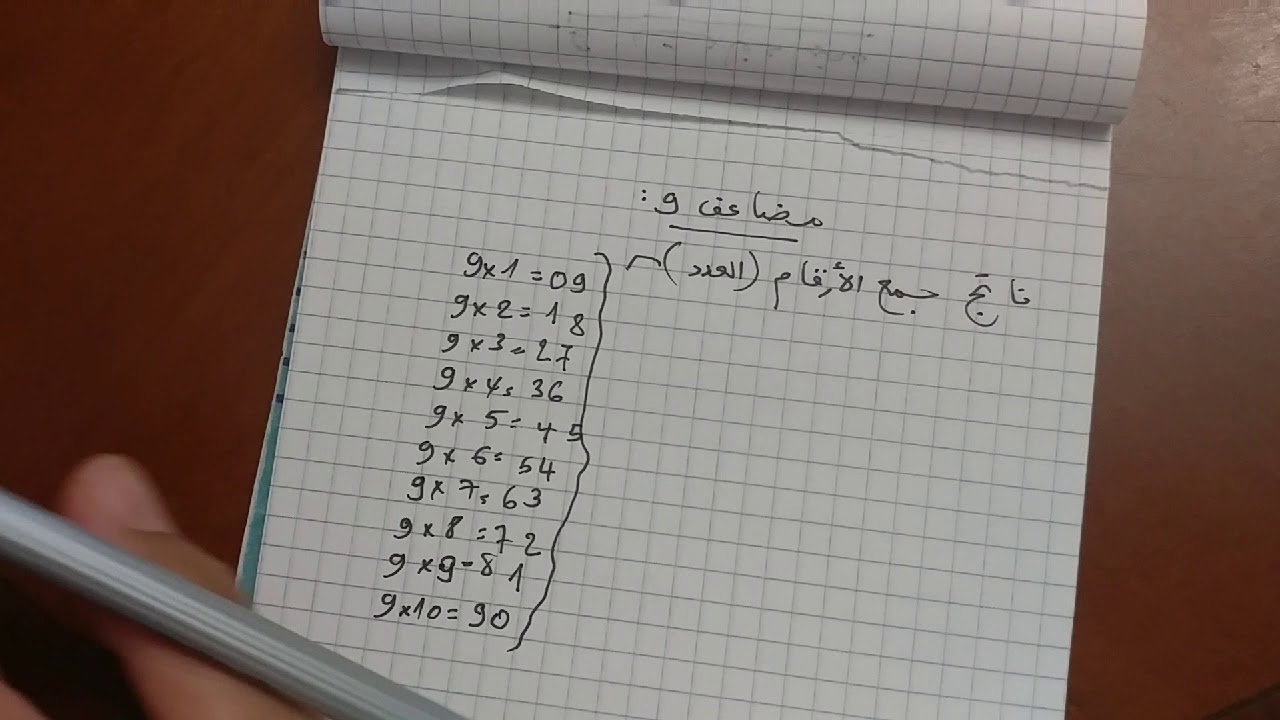 مضاعف 9 :
ناتج جمع الأرقام (العدد)
9x1=09
9x2=18
9x3=27
9x4=36
9x5=45
9x6=54
9x7=63
9x8=72
9x9=81
9x10=90